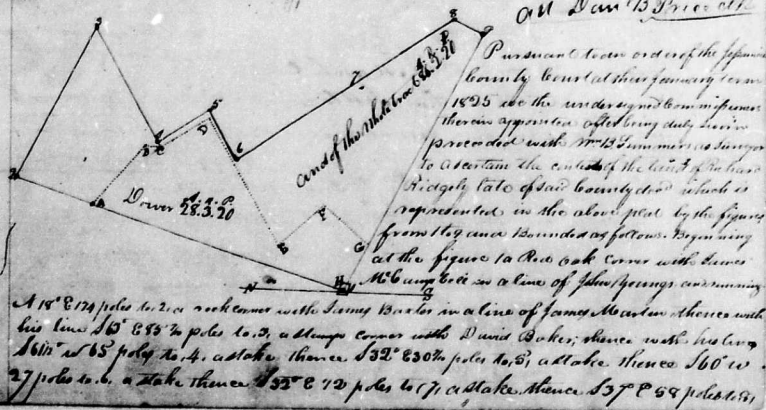 all Dan B Price
Pursuant to an order of the
County Court at their January term
1825 we the undersigned Commissioners
therein appointed after being duly sworn
proceeded with Wm B Summers as Surveyor
to ascertain the contents of the land of Richard
Ridgely late of said County decd which is
represented in the above plat by the figures
from 1 to 9 and Bounded as follows. Beginning
at the figure 1 a Red oak corner with James
McCampbell in a line of John Youngs and running
N 18° E 124 poles to 2, a rock corner with James Barter in a line of James Martin thence with
his line S 63° E 85 poles to, 3, a stump corner with David Baker; thence with his line
W 65 poles to, 4, a stake thence S 32° E 30 poles to, 5, a stake thence S 60° W
27 poles to 6, a stake thence S 32° E 72 poles to (7, a stake, thence S 37° E 58 poles to 8,
3
8
9
7
5
4
D
6
2
A
Dower
A. R. P.
28.3.20
and of the white tract
A. R. P.
E
F
G
H
N
S